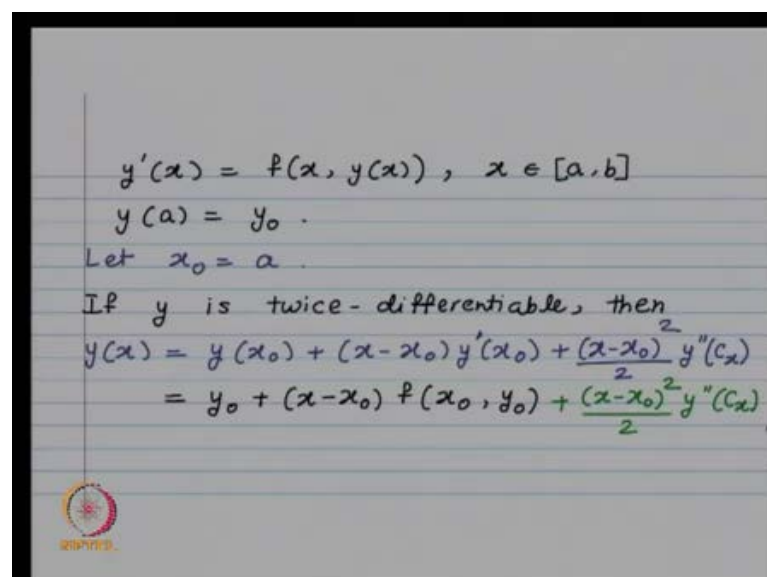 y'(x) = f(x, y(x)), x ∈ [a, b]
y(a) = y₀.
Let x₀ = a.
If y is twice-differentiable, then
y(x) = y(x₀) + (x-x₀) y'(x₀) + (x-x₀)²/2 y''(cₓ)
= y₀ + (x-x₀) f(x₀, y₀) + (x-x₀)²/2 y''(cₓ)
NPTEL